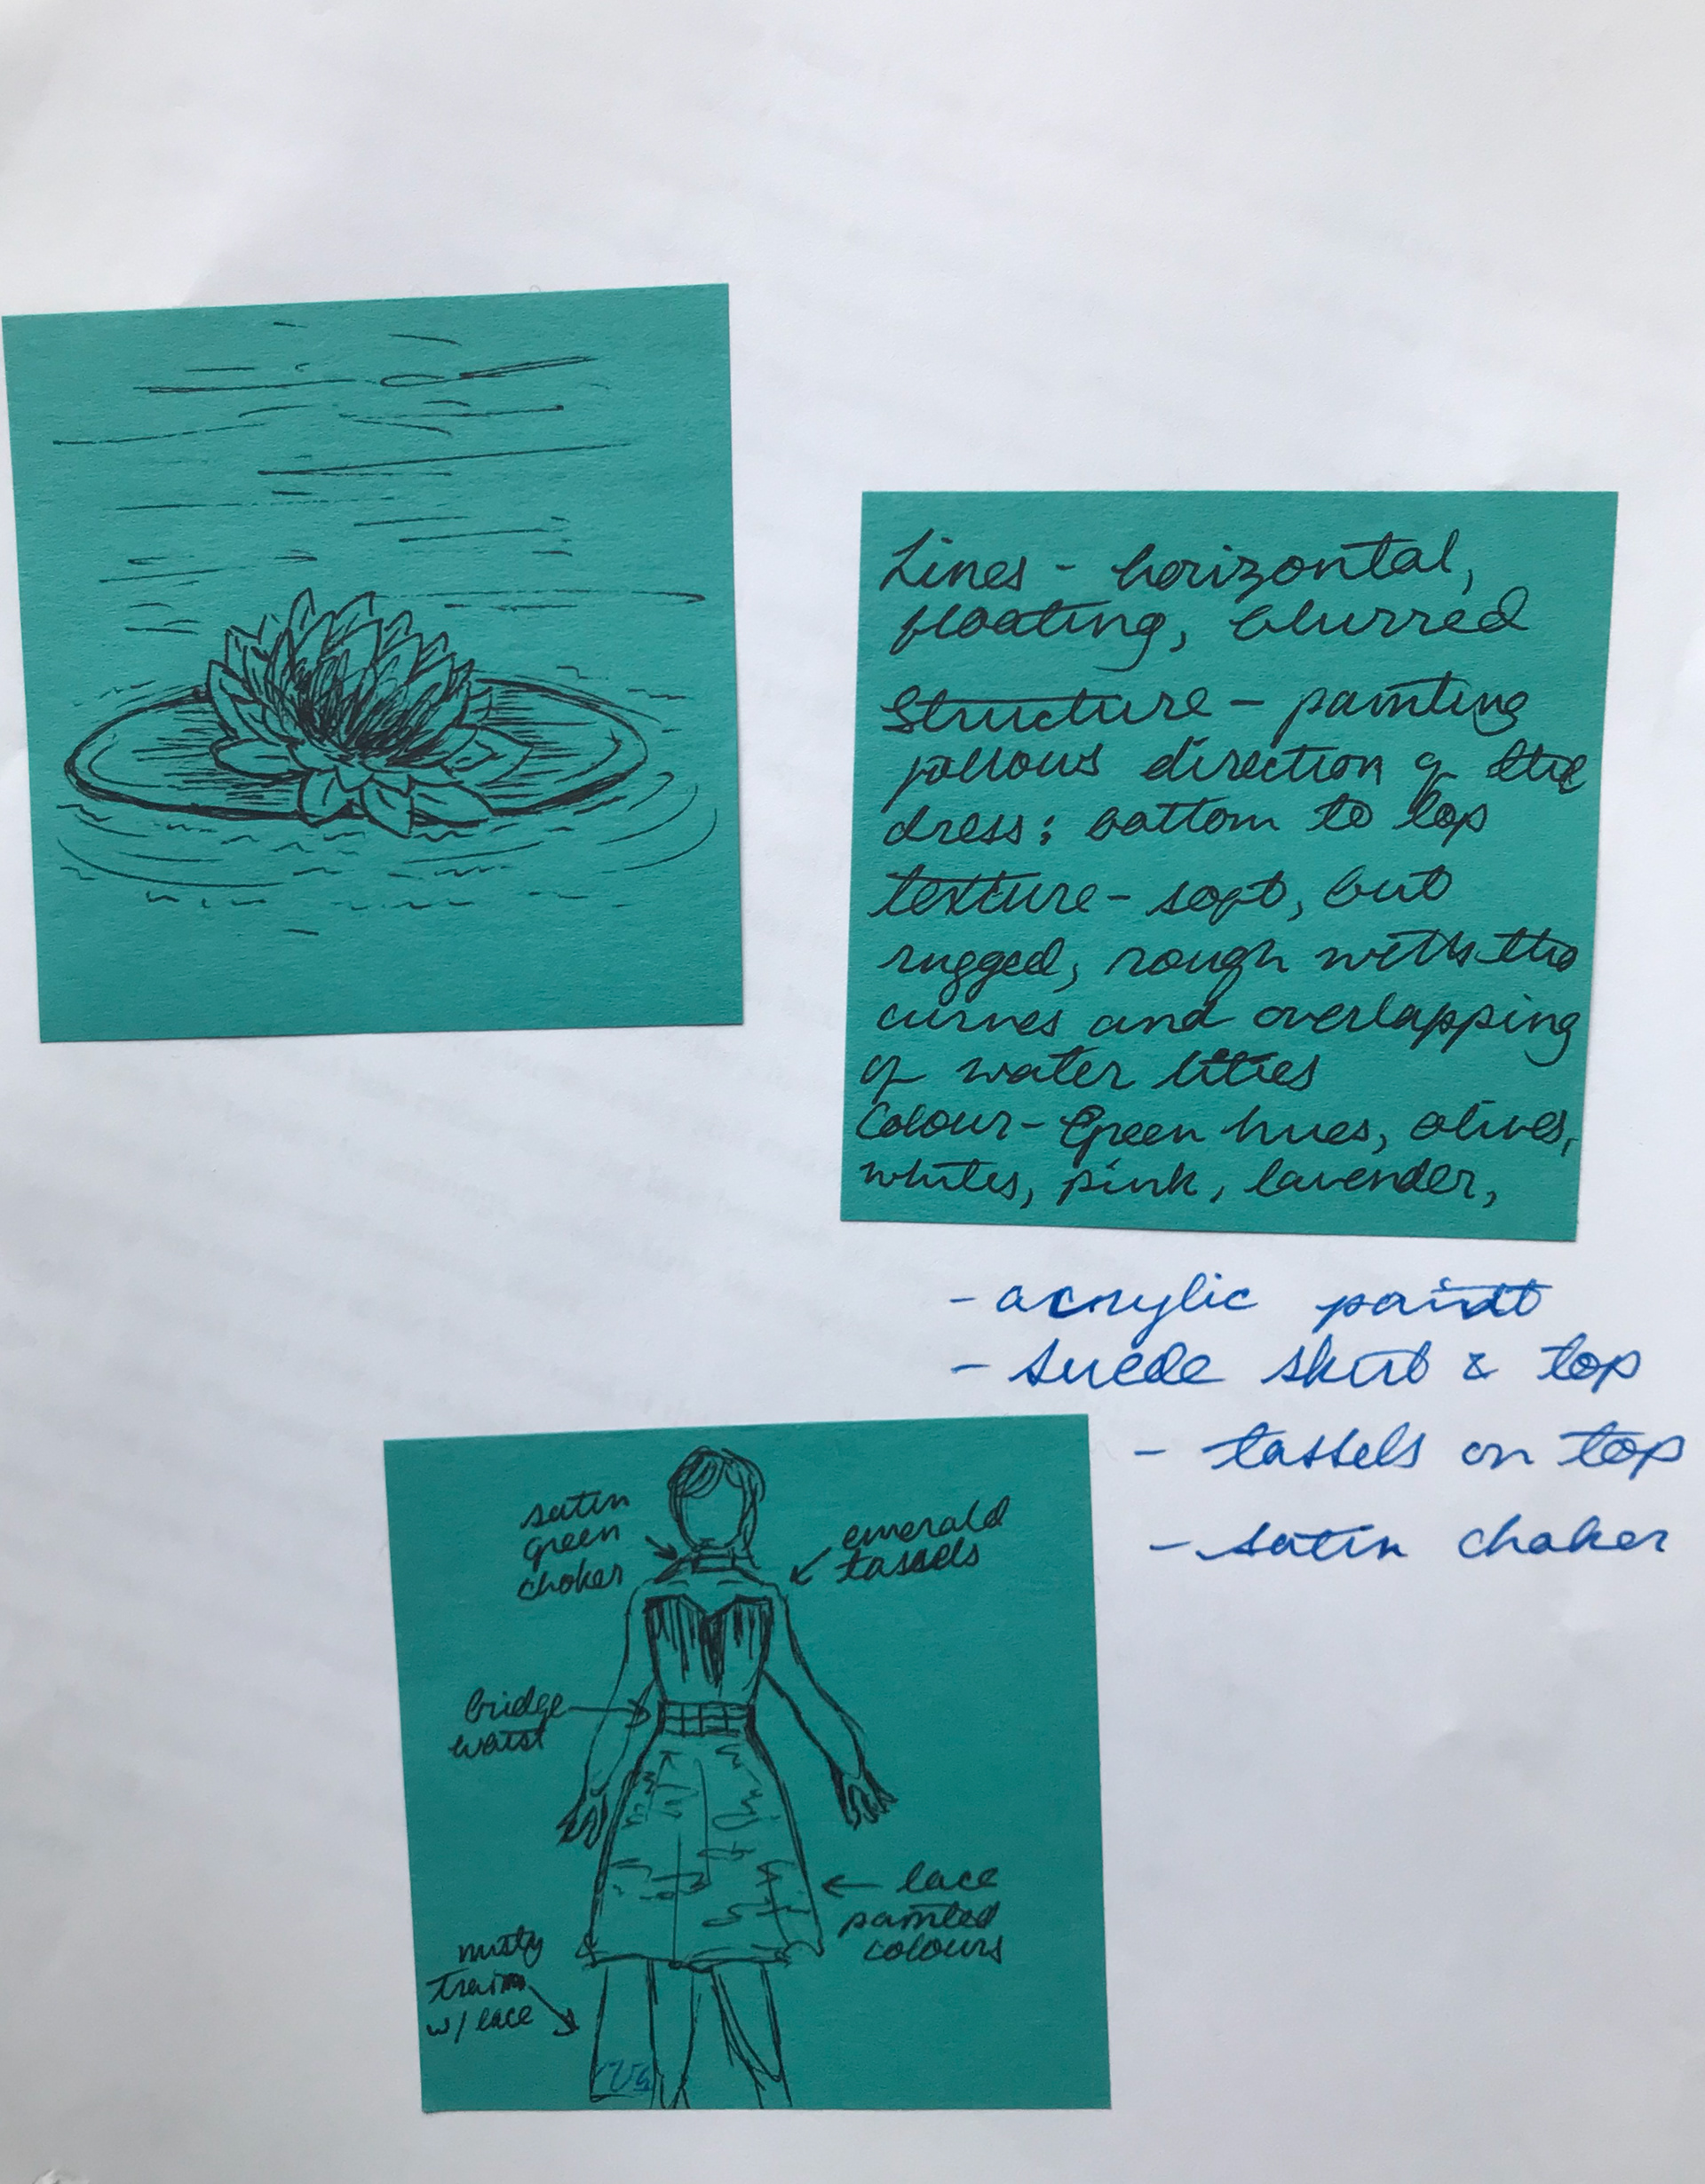 Lines - horizontal,
floating, blurred
Structure - painting
follows direction of the
dress: bottom to top
texture - soft, but
rugged, rough with the
curves and overlapping
of water lilies
Colour - Green hues, olives,
whites, pink, lavender,
- acrylic paint
- suede skirt & top
- tassels on top
- satin choker
satin
green
choker
emerald
tassels
bridge
waist
lace
painted
colours
misty
train
w/ lace